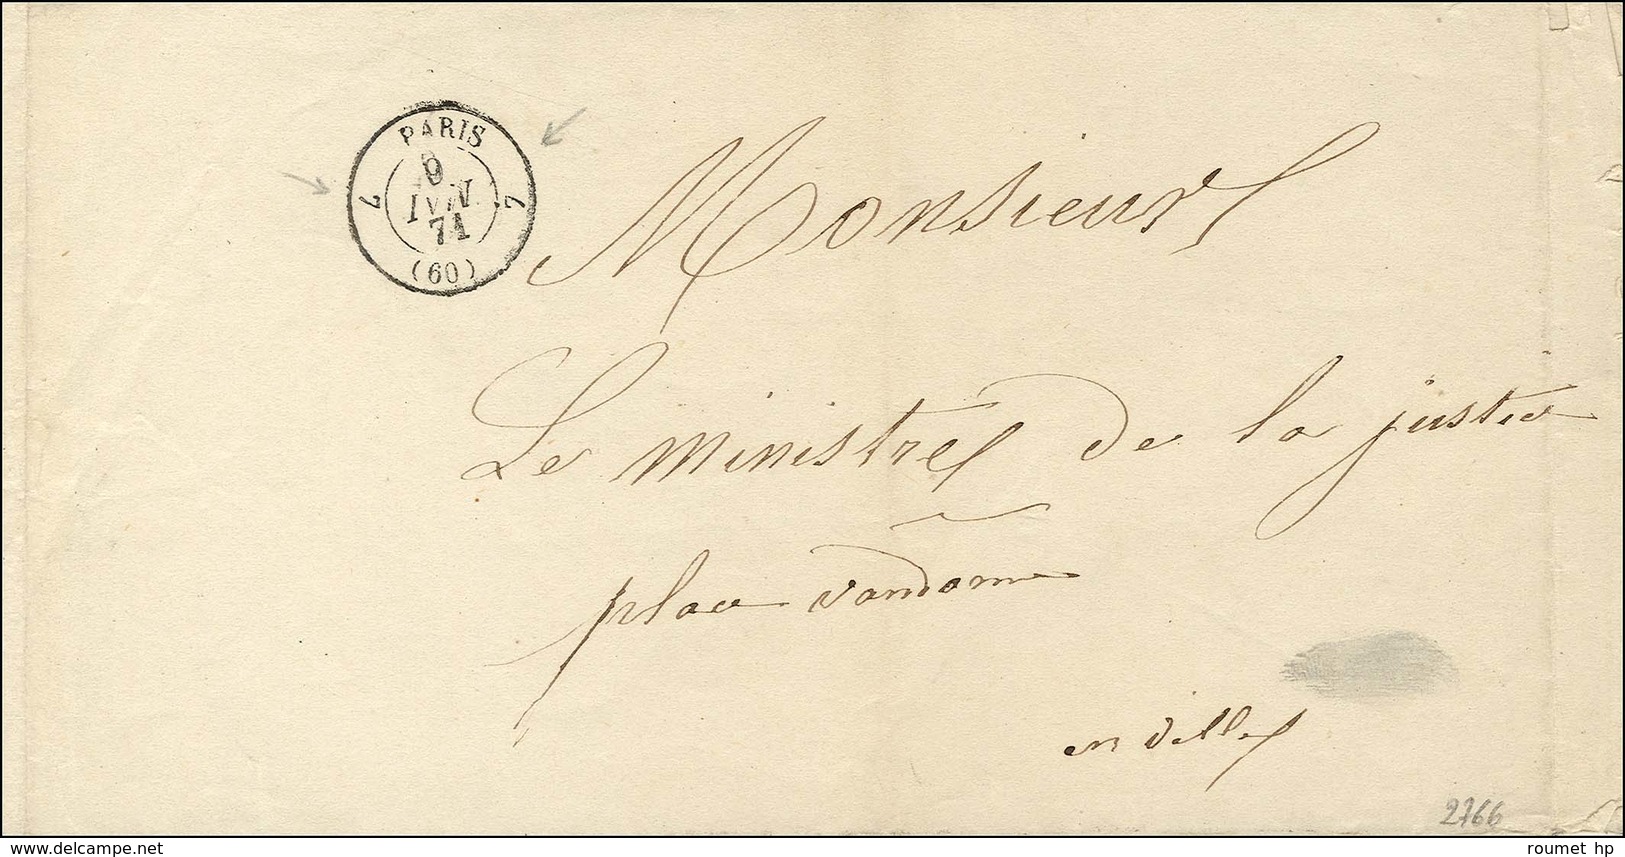 PARIS
7 9 7
JUIN
71
(60)
Monsieur
Le ministre de la justice
place vandome
en ville
2766
delcampe.net
roumet hp